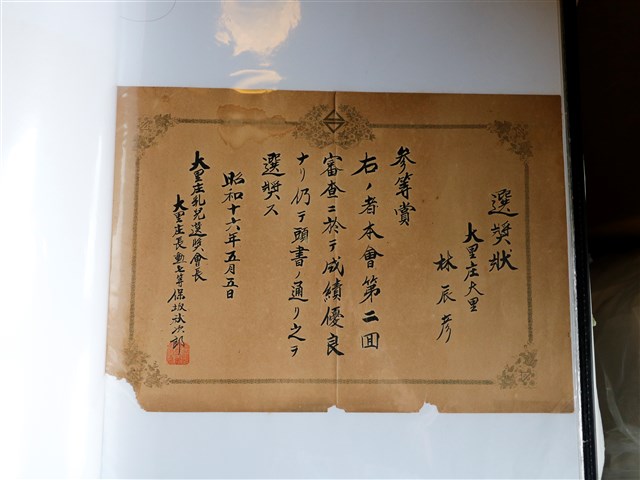 選奬狀
大里庄大里
林辰彥
參等賞
右ノ者本會第二囬
審查ニ於テ成績優良
ナリ仍テ頭書ノ通リ之ヲ
選奬ス
昭和十六年五月五日
大里庄乳兒選奬會長
大里庄長勳七等保坂秋次郎